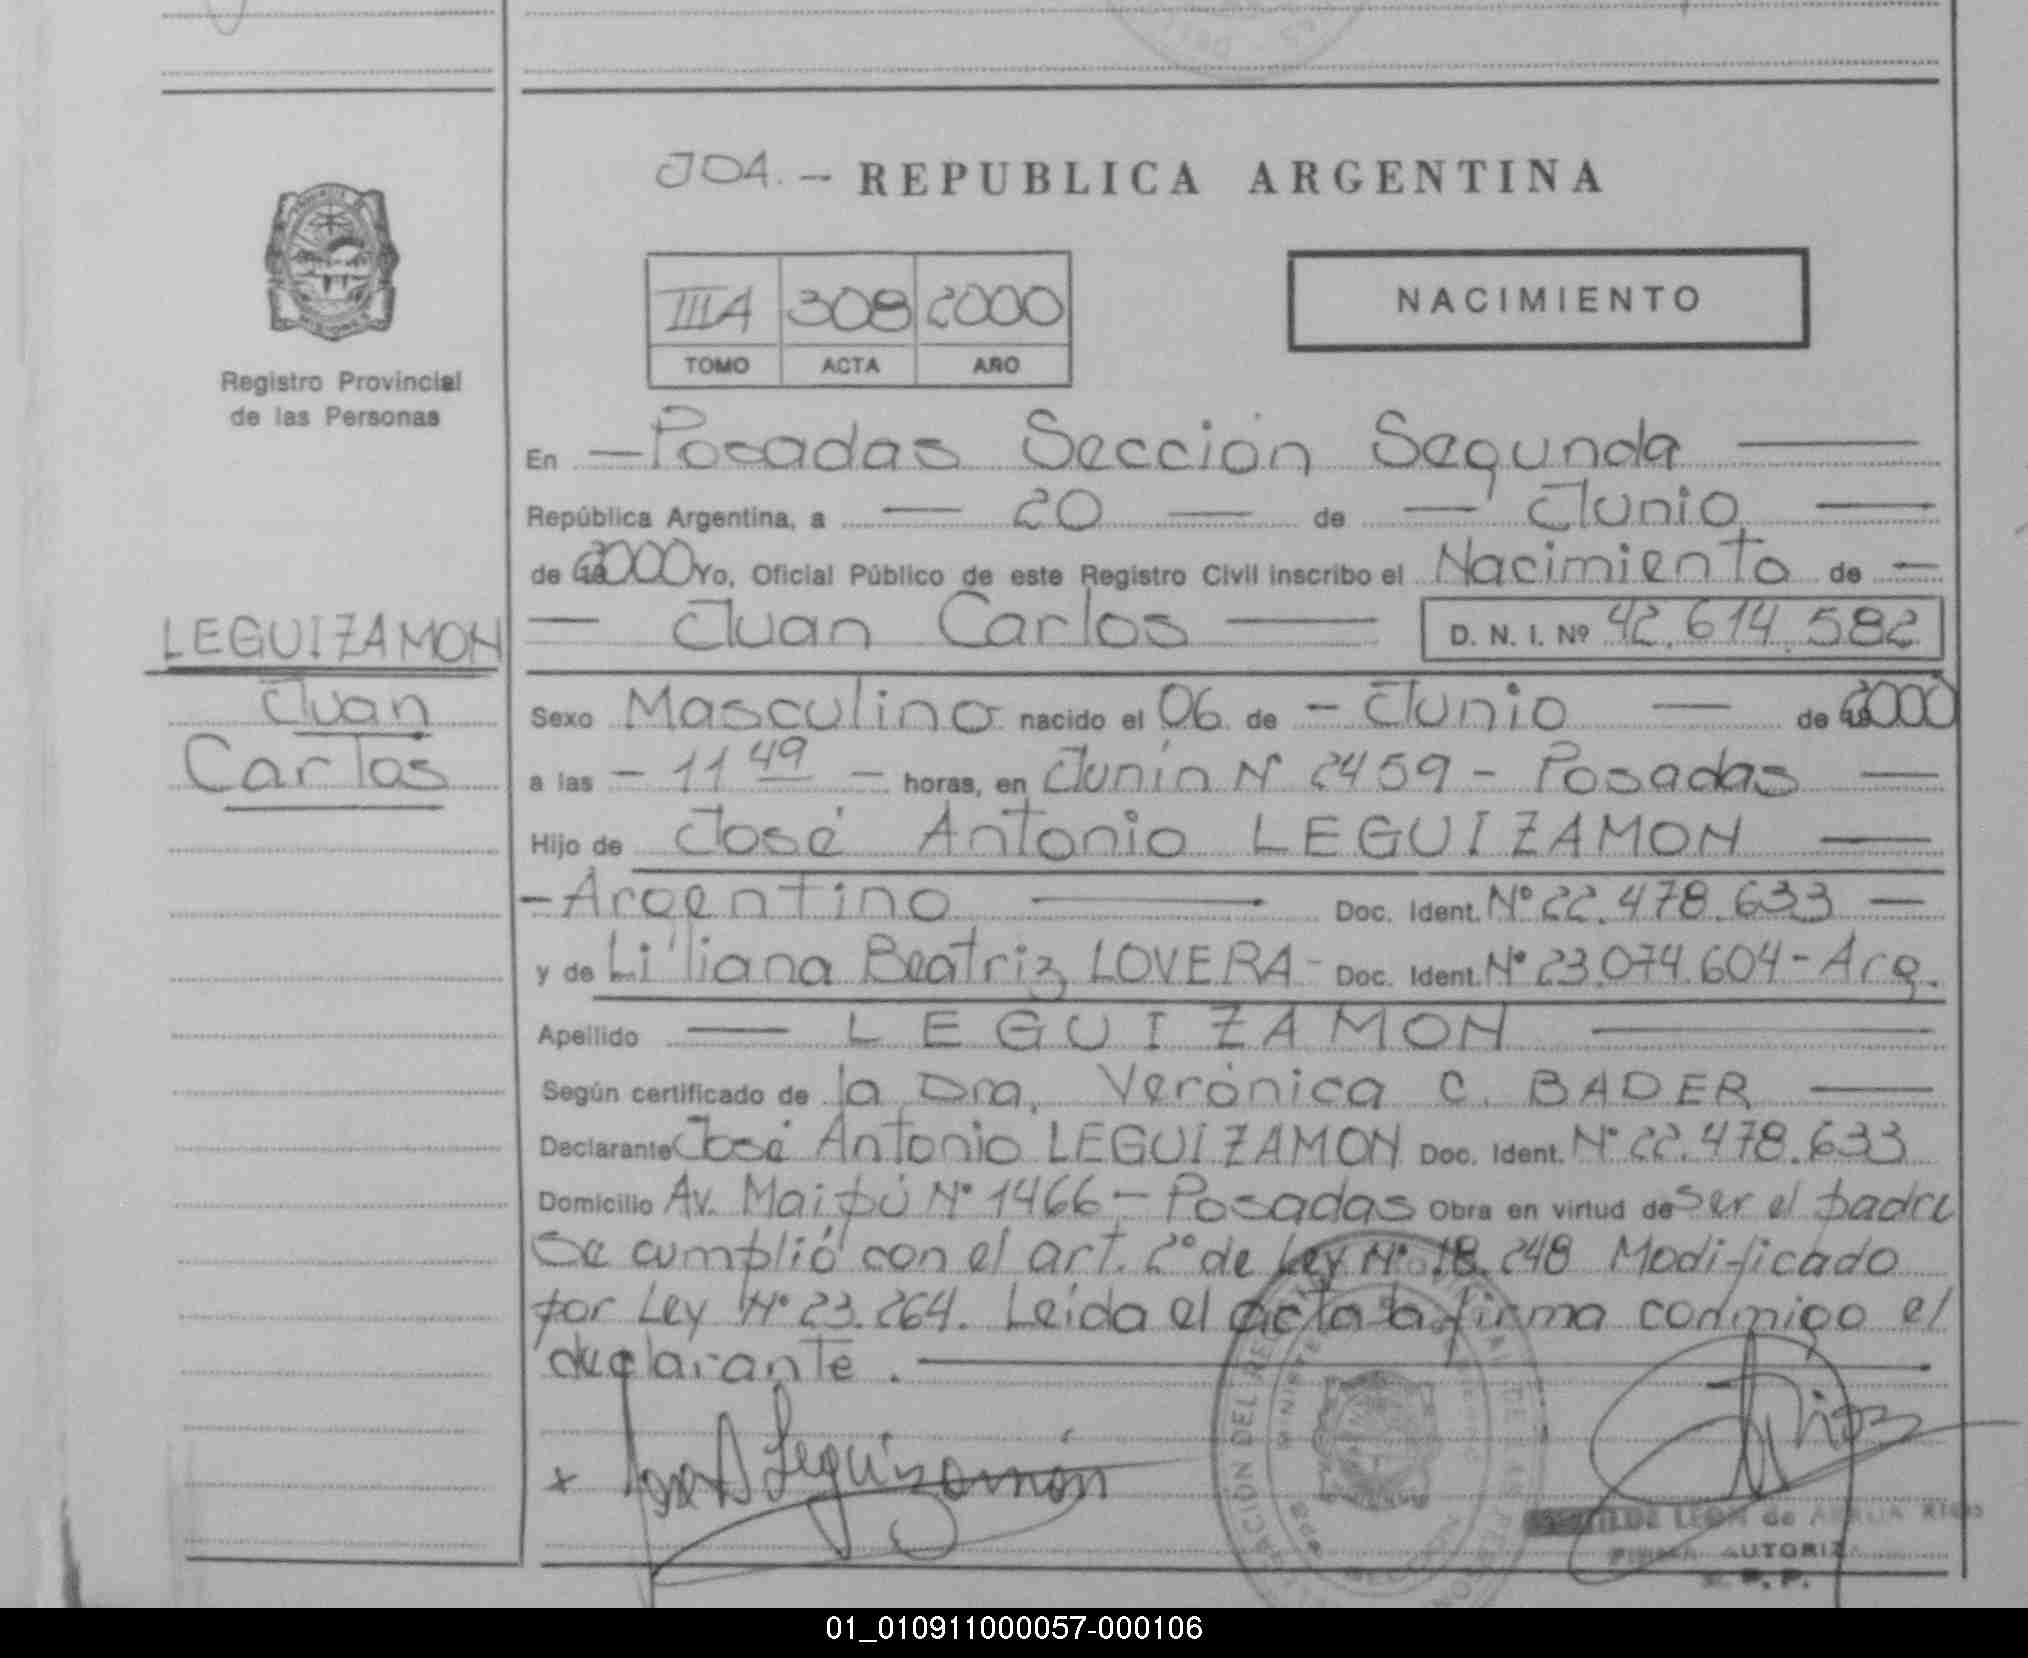 JDA. - REPUBLICA ARGENTINA
IIIA 308 2000
TOMO ACTA AÑO
NACIMIENTO
Registro Provincial
de las Personas
En — Posadas Sección Segunda —
República Argentina, a — 20 — de — Junio —
de 2000 Yo, Oficial Público de este Registro Civil inscribo el Nacimiento de —
— Juan Carlos — D. N. I. Nº 42.614.582
LEGUIZAMON
Juan
Carlos
Sexo Masculino nacido el 06 de - Junio — de 2000
a las - 11 49 - horas, en Junín Nº 2459 - Posadas —
Hijo de José Antonio LEGUIZAMON —
- Argentino — Doc. Ident. Nº 22.478.633 —
y de Liliana Beatriz LOVERA - Doc. Ident. Nº 23.074.604 - Arg.
Apellido — LEGUIZAMON —
Según certificado de la Dra. Verónica C. BADER —
Declarante José Antonio LEGUIZAMON Doc. Ident. Nº 22.478.633
Domicilio Av. Maipú Nº 1466 - Posadas Obra en virtud de Ser el padre
Se cumplió con el art. 2º de Ley Nº 18.248 Modificado
por Ley Nº 23.264. Leída el acta la firma conmigo el
declarante. —
x José A Leguizamón
LEON de
AUTORIZ
01_010911000057-000106